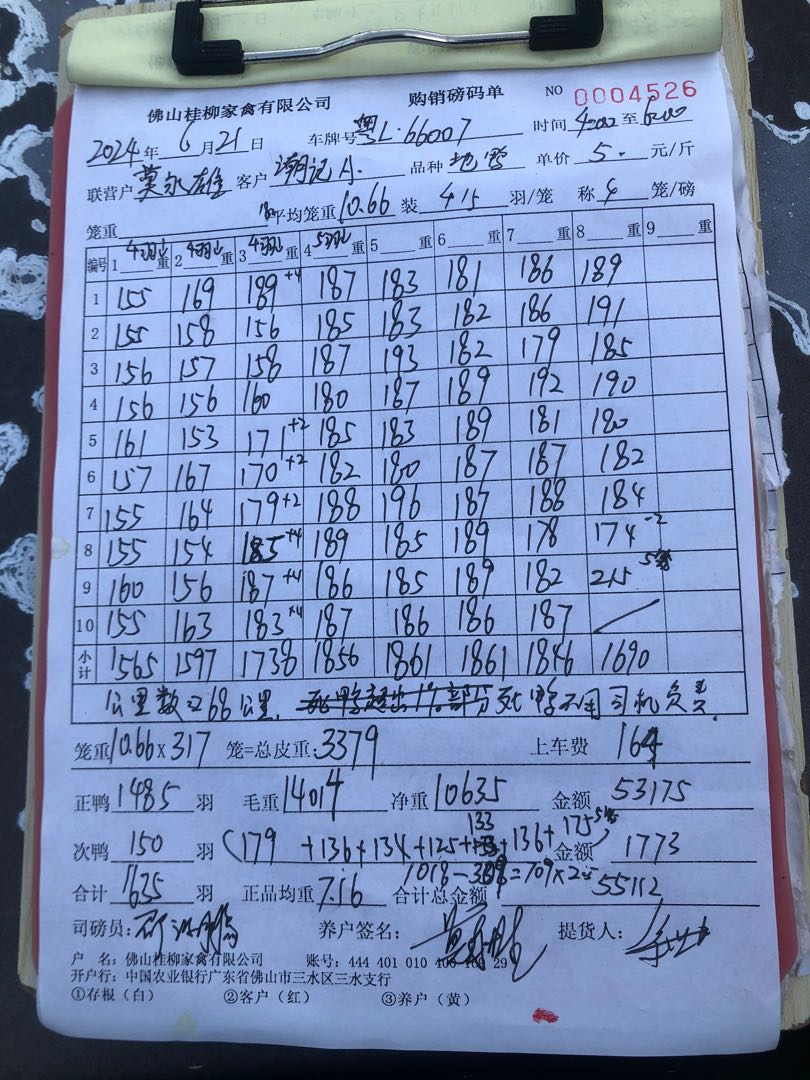 佛山桂柳家禽有限公司 购销磅码单 NO 0004526
2024年 6月21日 车牌号粤L·66007 时间4:00至6:00
联营户莫永雄 客户潮记A. 品种 单价5.元/斤
笼重 平均笼重10.66 装4/5羽/笼 称4笼/磅
编号 1 4羽 重 2 4羽 重 3 4羽 重 4 5羽 重 5 重 6 重 7 重 8 重 9 重
1 155 169 189+4 187 183 181 186 189
2 155 158 156 185 183 182 186 191
3 156 157 158 187 193 182 179 185
4 156 156 160 180 187 189 192 190
5 161 153 171+2 185 183 189 181 180
6 157 167 170+2 182 180 187 187 182
7 155 164 179+2 188 196 187 188 184
8 155 154 185+4 189 185 189 178 174-2
9 160 156 187+4 186 185 189 182 215 5笼
10 155 163 183+4 187 186 186 187
小计 1565 1597 1738 1856 1861 1861 1846 1690
公里数268公里. 死鸭超出1%部分死鸭不用司机负责.
笼重10.66×317 笼=总皮重:3379 上车费 164
正鸭1485羽 毛重14014 净重10635 金额53175
次鸭150羽 (179+136+134+125+133+136+175 5笼) 金额1773
1018-309=709×2.5
合计1635羽 正品均重7.16 合计总金额55112
司磅员: 养户签名: 提货人:
户 名:佛山桂柳家禽有限公司 账号:444 401 010 400 29
开户行:中国农业银行广东省佛山市三水区三水支行
①存根(白) ②客户(红) ③养户(黄)